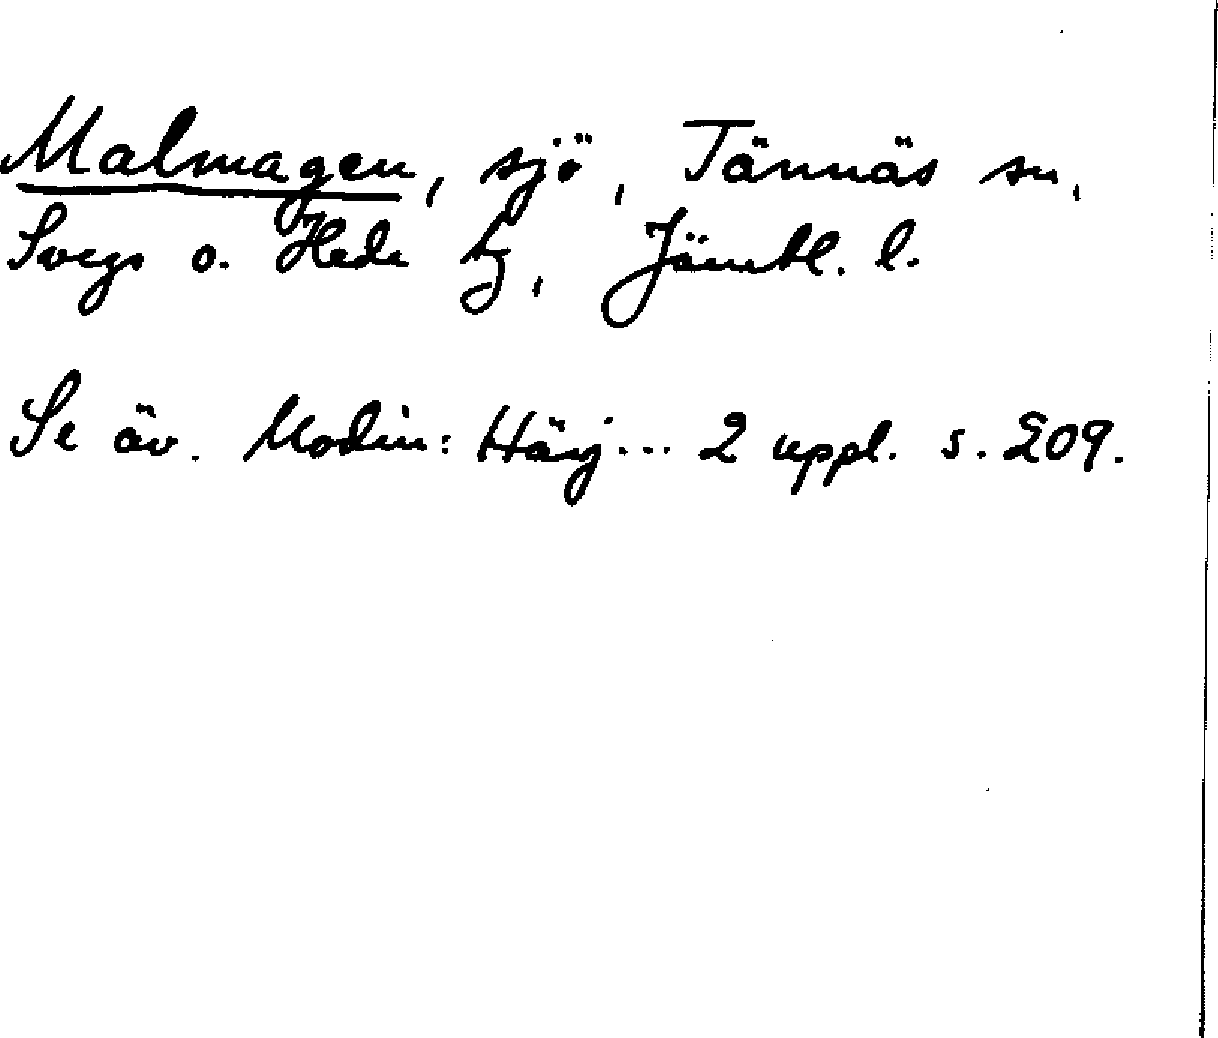 Malmagen, sjö, Tännäs sn,
Svegs o. Hede tg, Jämtl. l.
Se äv. Modin: Härj... 2 uppl. s. 209.